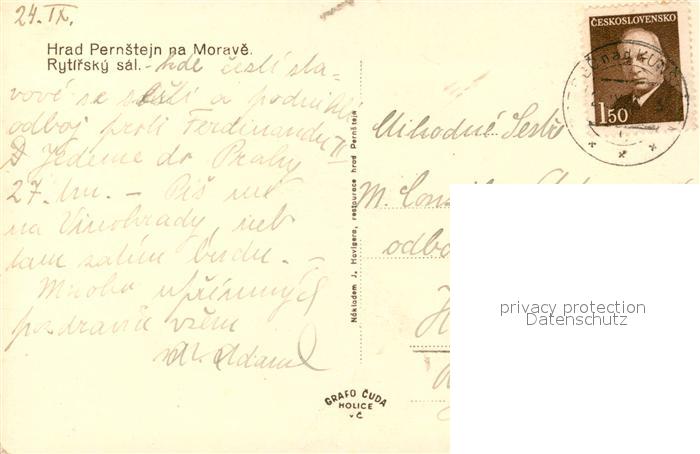 24. IX.
Hrad Pernštejn na Moravě.
Rytířský sál. - kde čeští sta-
vové se sešli a podnikli
odboj proti Ferdinandu II
Jedeme do Prahy
27. t.m. - Piš mě
na Vinohrady, neb
tam zatím budu. -
Mnoho upřímných
pozdravů všem
M. Adam
Nákladem J. Havigera, restaurace hrad Pernštejn
GRAFO ČUDA
HOLICE
v Č
ČESKOSLOVENSKO
1.50
nad KUN
Ctihodné Sestř
M.
odbo
privacy protection
Datenschutz